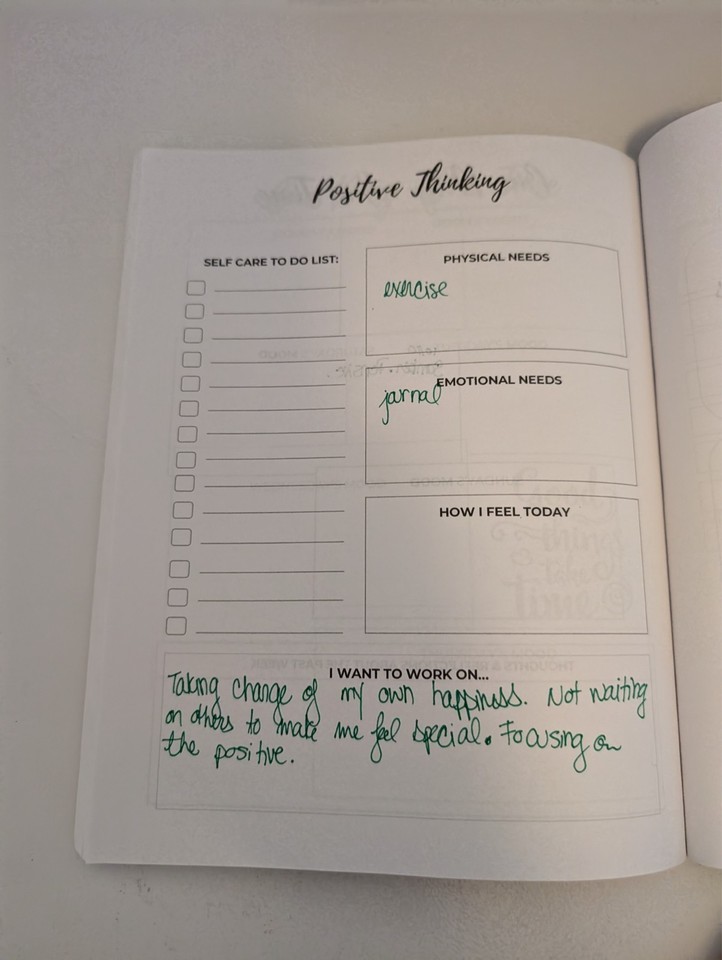 Positive Thinking
SELF CARE TO DO LIST:
PHYSICAL NEEDS
exercise
EMOTIONAL NEEDS
jarnal
HOW I FEEL TODAY
I WANT TO WORK ON...
Taking change of my own happiness. Not waiting
on others to make me feel special. Focusing on
the positive.